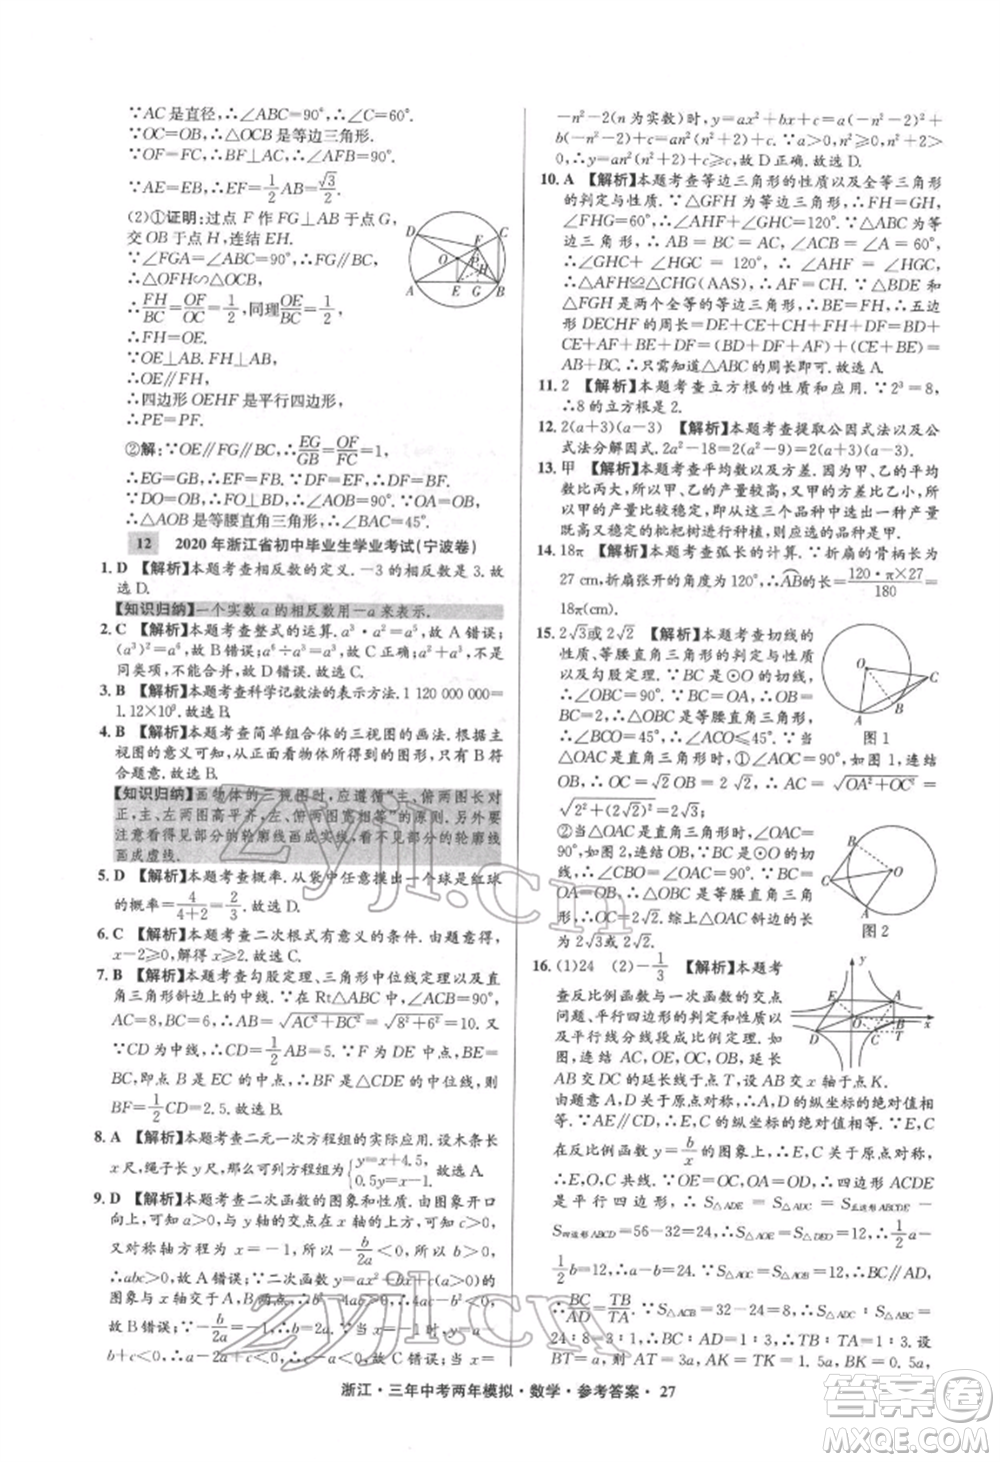 ∵AC是直径,∴∠ABC=90°,∴∠C=60°.
∵OC=OB,∴△OCB是等边三角形.
∵OF=FC,∴BF⊥AC,∴∠AFB=90°.
∵AE=EB,∴EF=1/2AB=√3/2.
(2)①证明:过点 F 作 FG⊥AB 于点 G,
交 OB 于点 H,连结 EH.
∵∠FGA=∠ABC=90°,
∴FG∥BC,
∴△OFH∽△OCB,
∴FH/BC=OF/OC=1/2,同理OE/BC=1/2,
∴FH=OE.
∵OE⊥AB.FH⊥AB,
∴OE∥FH,
∴四边形 OEHF 是平行四边形,
∴PE=PF.
②解:∵OE∥FG∥BC,∴EG/GB=OF/FC=1,
∴EG=GB,∴EF=FB.∵DE=EF,∴DF=BF.
∵DO=OB,∴FO⊥BD,∴∠AOB=90°.∵OA=OB,
∴△AOB是等腰直角三角形,∴∠BAC=45°.
12 2020年浙江省初中毕业生学业考试(宁波卷)
1. D 【解析】本题考查相反数的定义.-3的相反数是3.故选D.
【知识归纳】一个实数 a 的相反数用-a来表示.
2. C 【解析】本题考查整式的运算.a³·a²=a⁵,故 A 错误;
(a³)²=a⁶,故 B 错误;a⁶÷a³=a³,故 C 正确;a²,a³不是
同类项,不能合并,故 D 错误.故选C.
3. B 【解析】本题考查科学记数法的表示方法.1 120 000 000=
1.12×10⁹.故选 B.
4. B 【解析】本题考查简单组合体的三视图的画法.根据主
视图的意义可知,从正面看物体所得到的图形,只有 B 符
合题意.故选 B.
【知识归纳】画物体的三视图时,应遵循“主、俯两图长对
正,主、左两图高平齐,左、俯两图宽相等”的原则.另外要
注意看得见部分的轮廓线画成实线,看不见部分的轮廓线
画成虚线.
5. D 【解析】本题考查概率.从袋中任意摸出一个球是红球
的概率=4/(4+2)=2/3.故选 D.
6. C 【解析】本题考查二次根式有意义的条件.由题意得,
x-2≥0,解得 x≥2.故选 C.
7. B 【解析】本题考查勾股定理、三角形中位线定理以及直
角三角形斜边上的中线.∵在 Rt△ABC 中,∠ACB=90°,
AC=8,BC=6,∴AB=√(AC²+BC²)=√(8²+6²)=10.又
∵CD 为中线,∴CD=1/2AB=5.∵F 为 DE 中点,BE=
BC,即点 B 是 EC 的中点,∴BF 是△CDE 的中位线,则
BF=1/2CD=2.5.故选 B.
8. A 【解析】本题考查二元一次方程组的实际应用.设木条长
x尺,绳子长 y 尺,那么可列方程组为{y=x+4.5, 0.5y=x-1.故选 A.
9. D 【解析】本题考查二次函数的图象和性质.由图象开口
向上可知,与 y 轴的交点在 x 轴的上方可知 a>0,c>0,
又对称轴方程为 x=-1,∴-b/2a<0,∴b>0,
∴abc>0,故 A 错误;∵二次函数 y=ax²+bx+c(a>0)的
图象与 x 轴交于 A,B 两点,∴b²-4ac>0,∴4ac-b²<0,
故 B 错误;∵-b/2a=-1,∴b=2a.∵当 x=-1 时,y=a-
b+c<0,∴a-2a+c<0,∴c-a<0,故 C 错误;当 x=
-n²-2(n 为实数)时,y=ax²+bx+c=a(-n²-2)²+
b(-n²-2)+c=an²(n²+2)+c.∵a>0,n²≥0,n²+2>
0,∴y=an²(n²+2)+c≥c,故 D 正确.故选 D.
10. A 【解析】本题考查等边三角形的性质以及全等三角形
的判定与性质.∵△GFH 为等边三角形,∴FH=GH,
∠FHG=60°,∴∠AHF+∠GHC=120°.∵△ABC为等
边三角形,∴AB=BC=AC,∠ACB=∠A=60°,
∴∠GHC+∠HGC=120°,∴∠AHF=∠HGC,
∴△AFH≌△CHG(AAS),∴AF=CH.∵△BDE 和
△FGH 是两个全等的等边三角形,∴BE=FH,∴五边
形 DECHF 的周长=DE+CE+CH+FH+DF=BD+
CE+AF+BE+DF=(BD+DF+AF)+(CE+BE)=
AB+BC.∴只需知道△ABC 的周长即可.故选 A.
11. 2 【解析】本题考查立方根的性质和应用.∵2³=8,
∴8的立方根是2.
12. 2(a+3)(a-3) 【解析】本题考查提取公因式法以及公
式法分解因式.2a²-18=2(a²-9)=2(a+3)(a-3).
13. 甲 【解析】本题考查平均数以及方差.因为甲、乙的平均
数比丙大,所以甲、乙的产量较高,又甲的方差比乙小,所
以甲的产量比较稳定,即从这三个品种中选出一种产量既
高又稳定的枇杷树进行种植,应选的品种是甲.
14. 18π 【解析】本题考查弧长的计算.∵折扇的骨柄长为
27 cm,折扇张开的角度为120°,∴AB的长=120·π×27/180=
18π(cm).
15. 2√3或2√2 【解析】本题考查切线的
性质、等腰直角三角形的判定与性质以
及勾股定理.∵BC是⊙O的切线,
∴∠OBC=90°.∵BC=OA,∴OB=
BC=2,∴△OBC 是等腰直角三角形,
∴∠BCO=45°,∴∠ACO≤45°.∵当
△OAC是直角三角形时,①∠AOC=
90°,∴OC=√2OB=2√2,∴AC=√(OA²+OC²)=
2√3;
②当△OAC是直角三角形时,∠OAC=
90°,连结 OB.∵BC 是⊙O 的切线,
∴∠CBO=∠OAC=90°.∵BC=
OA=OB,∴△OBC 是等腰直角三角形,
∴OC=2√2.综上,△OAC 斜边的长为
2√3或2√2.
图 1
图 2
16. (1)24 (2)-1/3 【解析】本题考
查反比例函数与一次函数的交点
问题、平行四边形的判定和性质以
及平行线分线段成比例定理.如
图,连结 AC,OE,OC,OB,延长
AB 交 DC 的延长线于点 T,设 AB 交 x 轴于点 K.
由题意 A,D 关于原点对称,∴A,D 的纵坐标的绝对值相
等.∵AE∥CD,∴E,C 的纵坐标的绝对值相等.∵E,C
在反比例函数 y=b/x 的图象上,∴E,C 关于原点对称,
∴E,O,C 共线.∵OE=OC,OA=OD,∴四边形 ACDE
是平行四边形,∴S△ADE=S△ADC=S五边形ABCDE-
S四边形ABCD=56-32=24,∴S△AOE=S△DEO=12,∴1/2a-
1/2b=12,∴a-b=24.∵S△AOC=S△AOB=12,∴BC∥AD,
∴BC/AD=TB/TA.∵S△ACB=32-24=8,∴S△ADC:S△ABC=
24:8=3:1,∴BC:AD=1:3,∴TB:TA=1:3.设
浙江·三年中考两年模拟·数学·参考答案·27